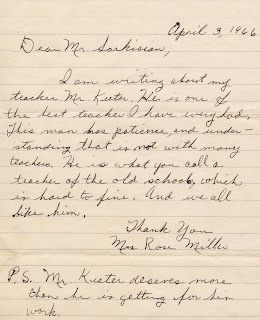 April 3, 1966
Dear Mr. Sarkisian,
I am writing about my
teacher Mr. Kieter. He is one of
the best teacher I have every had.
This man has patience and under-
standing that is not with many
teachers. He is what you call a
teacher of the old school, which
is hard to fine. And we all
like him.
Thank You
Mrs Rose Miller
P.S. Mr. Kieter deserves more
then he is getting for him
work.